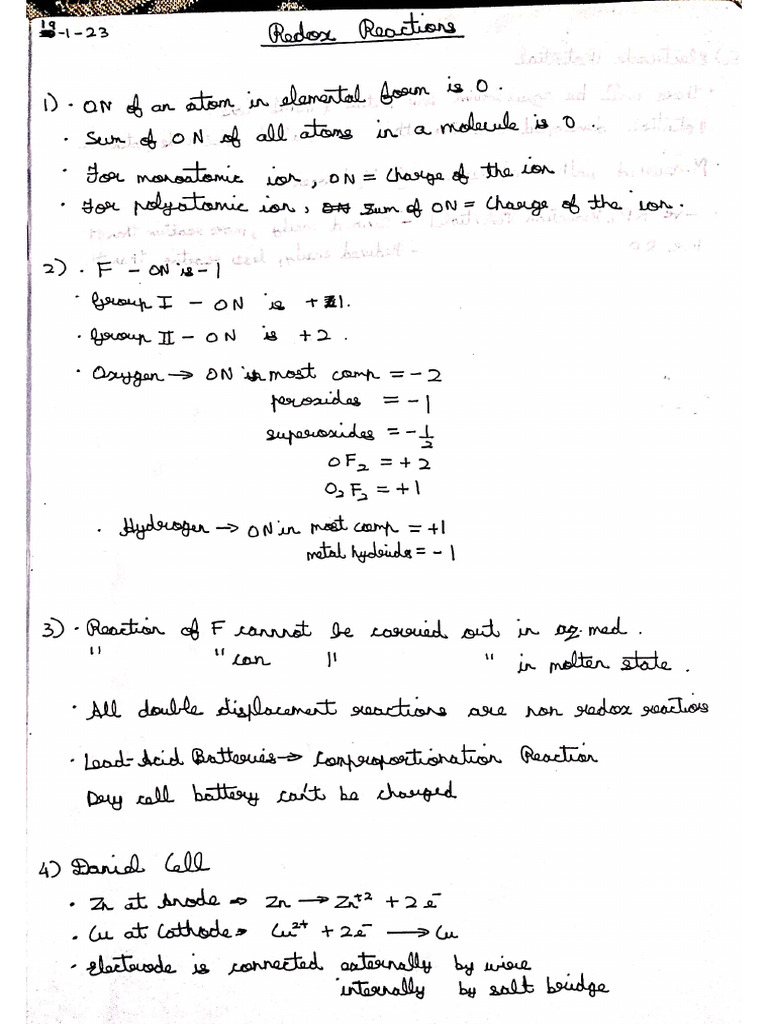 19-1-23
Redox Reactions
1) · ON of an atom in elemental form is 0.
· Sum of ON of all atoms in a molecule is 0
· For monoatomic ion, ON = Charge of the ion
· For polyatomic ion, Sum of ON = Charge of the ion.
2) · F - ON is -1
· Group I - ON is +1.
· Group II - ON is +2.
· Oxygen → ON in most comp = -2
peroxides = -1
superoxides = -1/2
OF₂ = +2
O₂F₂ = +1
· Hydrogen → ON in most comp = +1
metal hydrids = -1
3) · Reaction of F cannnot be carried out in aq. med.
" " can " " in molten state.
· All double displacement reactions are non redox reactions
· Lead-Acid Batteries → Comproportionation Reaction
Dry cell battery can't be charged
4) Daniel Cell
· Zn at Anode ⇒ Zn → Zn⁺² + 2e⁻
· Cu at Cathode ⇒ Cu²⁺ + 2e⁻ → Cu
· Electrode is connected externally by wire
internally by salt bridge